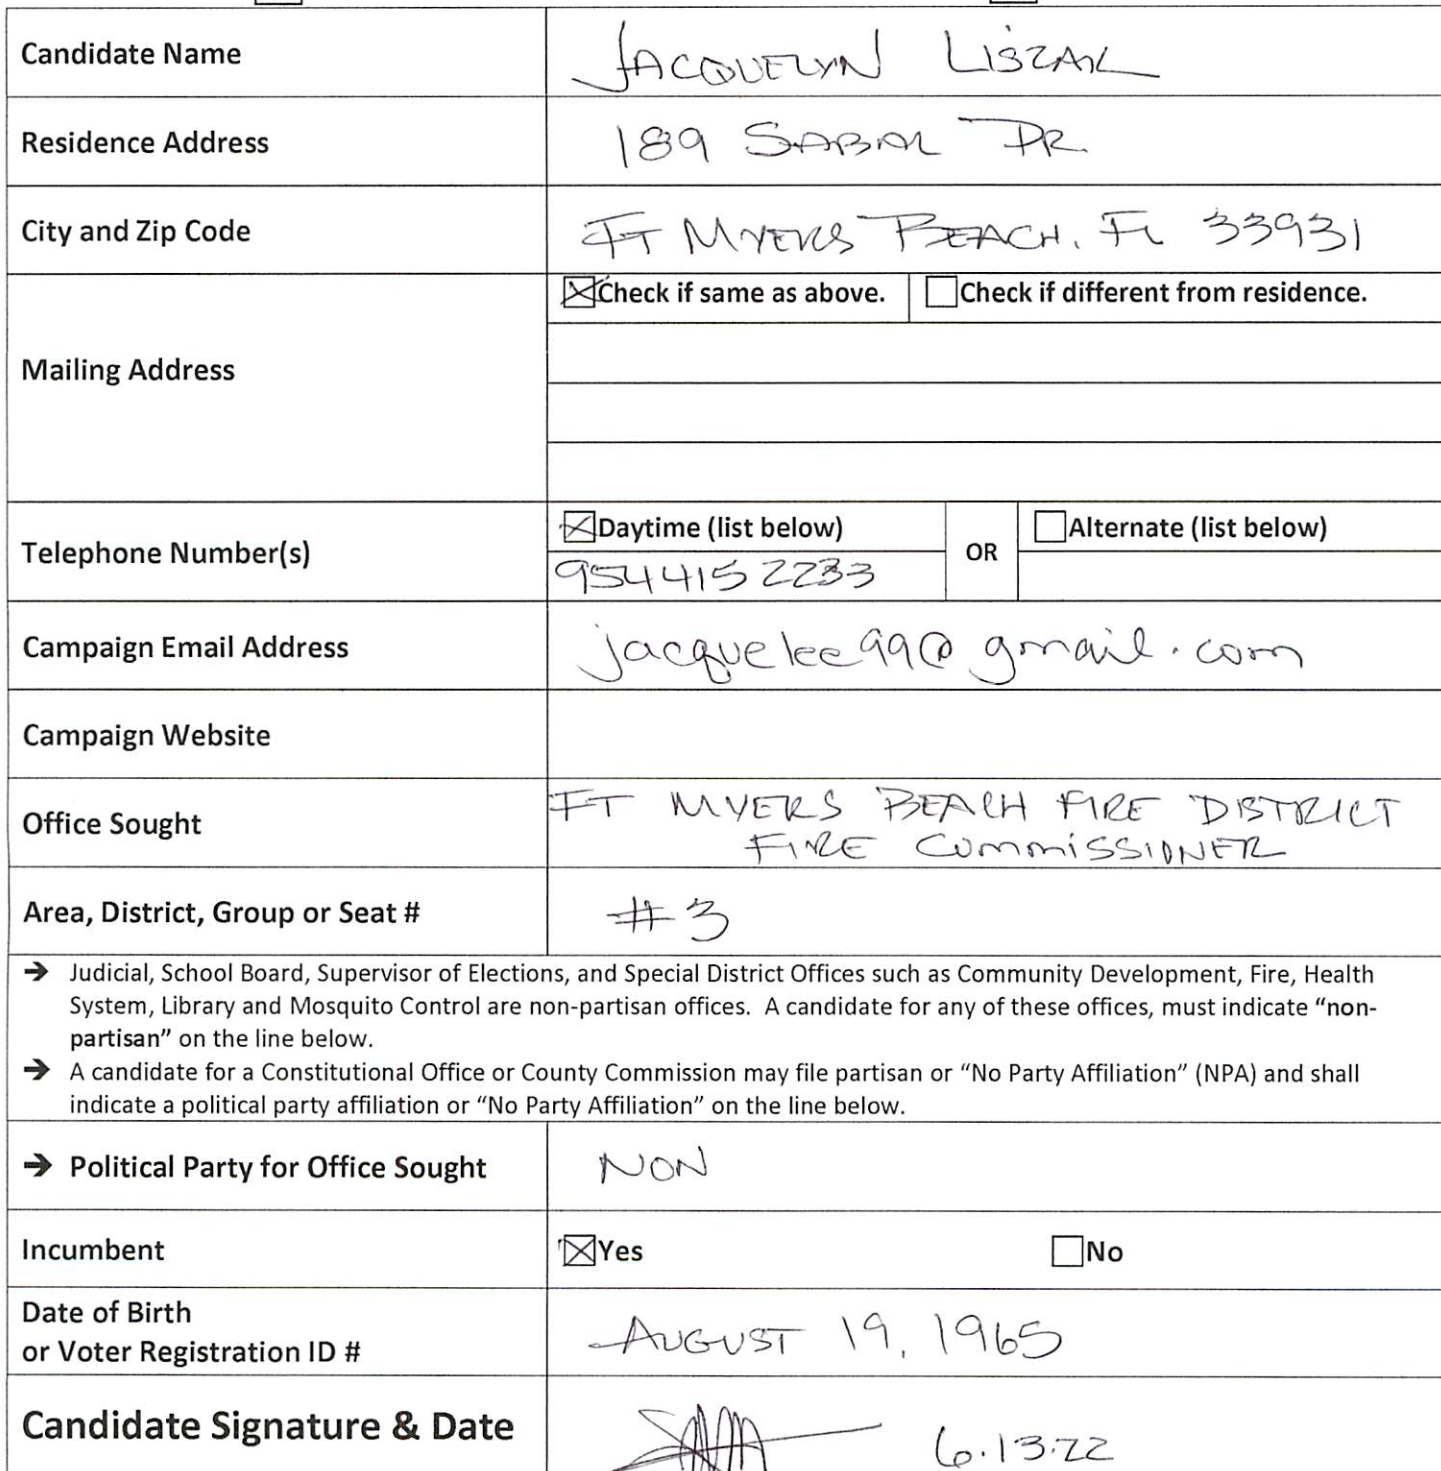 Candidate Name JACQUELYN LISZAK
Residence Address 189 SABAL DR.
City and Zip Code FT MYERS BEACH, FL 33931
☒Check if same as above. ☐Check if different from residence.
Mailing Address
☒Daytime (list below) OR ☐Alternate (list below)
Telephone Number(s) 954 415 2233
Campaign Email Address jacquelee99@gmail.com
Campaign Website
Office Sought FT MYERS BEACH FIRE DISTRICT
FIRE COMMISSIONER
Area, District, Group or Seat # #3
➔ Judicial, School Board, Supervisor of Elections, and Special District Offices such as Community Development, Fire, Health
System, Library and Mosquito Control are non-partisan offices. A candidate for any of these offices, must indicate “non-
partisan” on the line below.
➔ A candidate for a Constitutional Office or County Commission may file partisan or “No Party Affiliation” (NPA) and shall
indicate a political party affiliation or “No Party Affiliation” on the line below.
➔ Political Party for Office Sought NON
Incumbent ☒Yes ☐No
Date of Birth
or Voter Registration ID # AUGUST 19, 1965
Candidate Signature & Date 6.13.22